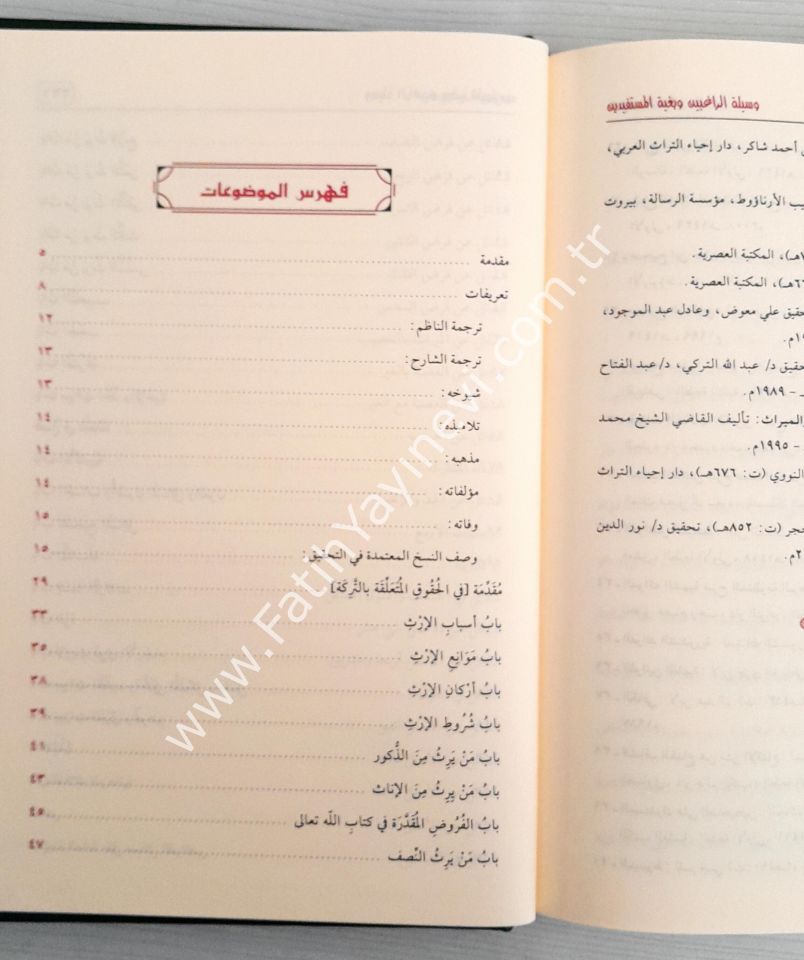 وسيلة الراغبين وبغية المستفيدين
أحمد شاكر، دار إحياء التراث العربي،
الأرناؤوط، مؤسسة الرسالة، بيروت
المكتبة العصرية.
المكتبة العصرية.
علي معوض، وعادل عبد الموجود،
د/ عبد الله التركي، د/ عبد الفتاح
- ١٩٨٩م.
والميراث: تأليف القاضي الشيخ محمد
- ١٩٩٥م.
النووي (ت: ٦٧٦هـ)، دار إحياء التراث
حجر (ت: ٨٥٢هـ)، تحقيق د/ نور الدين
فهرس الموضوعات
مقدمة ٥
تعريفات ٨
ترجمة الناظم: ١٢
ترجمة الشارح: ١٣
شيوخه: ١٣
تلاميذه: ١٤
مذهبه: ١٤
مؤلفاته: ١٤
وفاته: ١٥
وصف النسخ المعتمدة في التحقيق: ١٥
مُقَدِّمَة [في الحُقُوقِ المُتَعَلِّقَة بالتَّرِكَة] ٢٩
بابُ أسبابِ الإرْثِ ٣٣
بابُ مَوَانِعِ الإرْثِ ٣٥
بابُ أرْكانِ الإرْثِ ٣٨
بابُ شُرُوطِ الإرْثِ ٣٩
بابُ مَنْ يَرِثُ مِنَ الذُّكور ٤١
بابُ مَنْ يَرِثُ مِنَ الإناث ٤٣
بابُ الفُرُوضِ المُقَدَّرَة في كتابِ اللّه تعالى ٤٥
بابُ مَنْ يَرِثُ النِّصف ٤٧
www.FatihYayinevi.com.tr